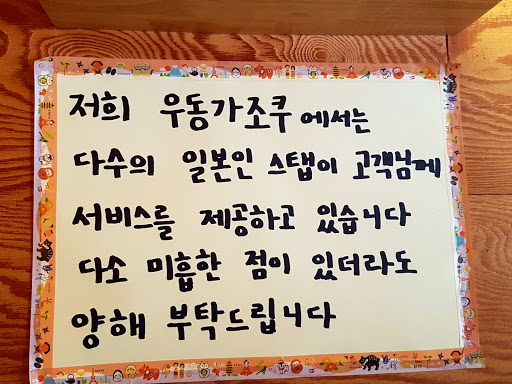 저희 우동가조쿠에서는
다수의 일본인 스탭이 고객님께
서비스를 제공하고 있습니다
다소 미흡한 점이 있더라도
양해 부탁드립니다